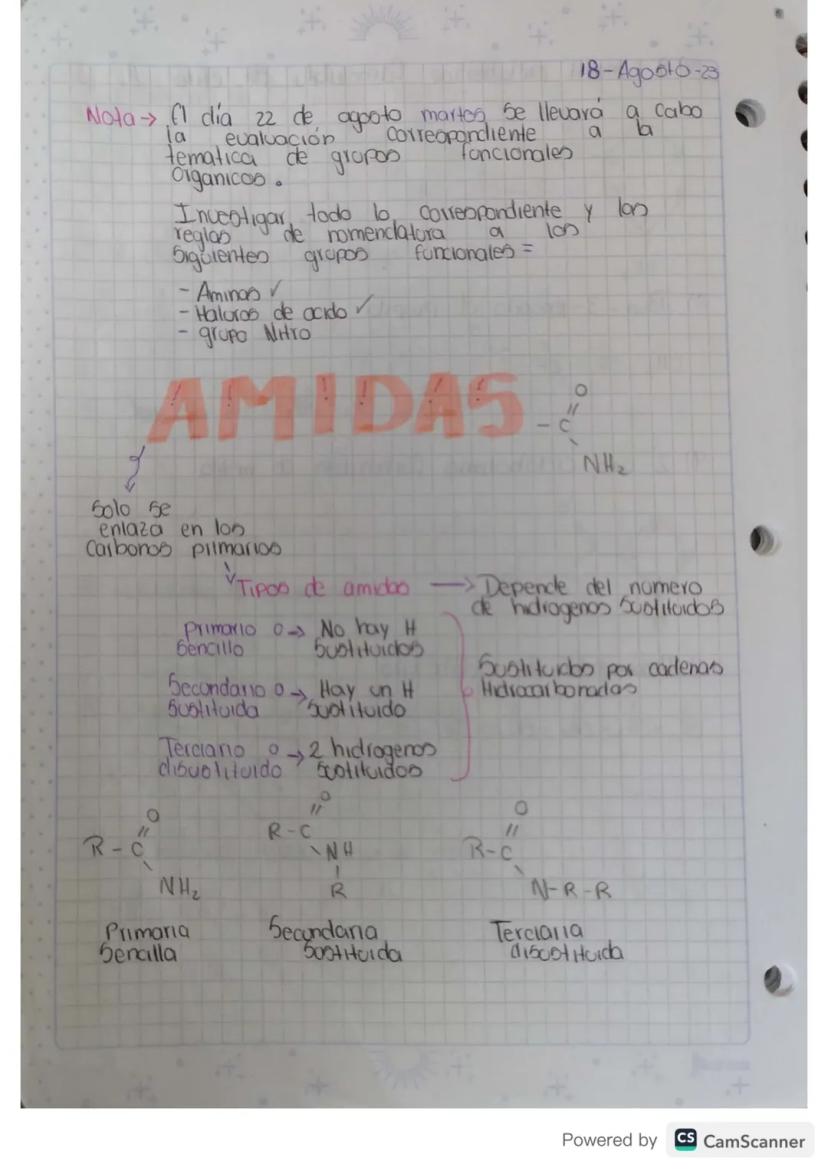 18-Agosto-23
Nota → El día 22 de agosto martes se llevará a cabo
la evaluación correspondiente a la
tematica de grupos funcionales
Organicos.
Investigar todo lo correspondiente y los
reglas de nomenclatura a los
Siguientes grupos funcionales =
- Aminas ✓
- Haluros de acido ✓
- grupo Nitro
AMIDAS
O
//
- C
\
NH₂
Solo se
enlaza en los
Carbonos primarios
Tipos de amidas → Depende del numero
de hidrogenos sustituidos
Primario o → No hay H
Sencillo Sustituidos
Secundario o → Hay un H
Sustituida Sustituido
Terciario o → 2 hidrogenos
disustituido sustituidos
Sustituidos por cadenas
Hidrocarbonadas
O
//
R - C
\
NH₂
O
//
R - C
\ NH
|
R
O
//
R-C
\
N-R-R
Primaria
Sencilla
Secundaria
Sustituida
Terciaria
disustituida
Powered by CS CamScanner